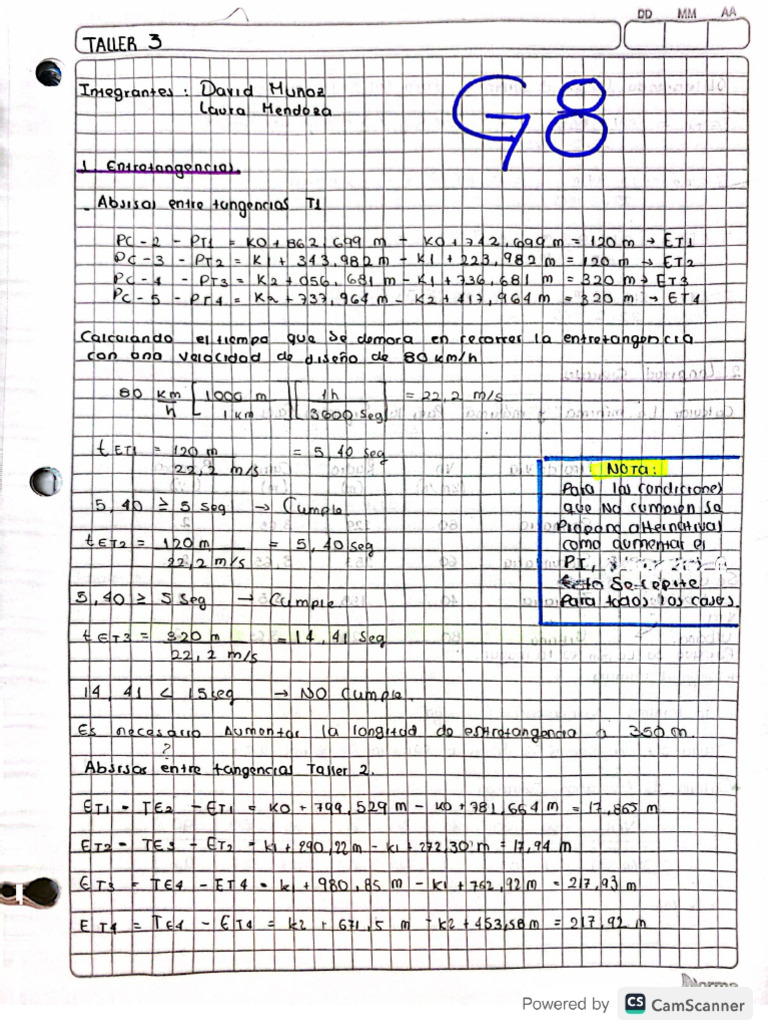 DD MM AA
TALLER 3
Integrantes : David Munoz
Laura Mendoza
G8
1. Entretangencias.
- Absisas entre tangencias T1
PC-2 - PT1 = K0+862,699 m - K0+742,699 m = 120 m → ET1
PC-3 - PT2 = K1+343,982 m - K1+223,982 m = 120 m → ET2
PC-4 - PT3 = K2+056,681 m - K1+736,681 m = 320 m → ET3
PC-5 - PT4 = K2+737,964 m - K2+417,964 m = 320 m → ET4
Calculando el tiempo que se demora en recorrer la entretangencia
con una velocidad de diseño de 80 km/h
80 km/h [1000 m / 1 km] [1h / 3600 seg] = 22,2 m/s
t ET1 = 120 m / 22,2 m/s = 5,40 seg
5,40 ≥ 5 seg → Cumple
t ET2 = 120 m / 22,2 m/s = 5,40 seg
5,40 ≥ 5 seg → Cumple
t ET3 = 320 m / 22,2 m/s = 14,41 seg
14,41 < 15 seg → NO Cumple.
NOTA:
Para las condiciones
que No cumplen se
Propone alternativas
como aumentar el
PI,
Esto Se repite
Para todos los casos.
Es necesario Aumentar la longitud de entretangencia a 350 m.
?
Absisas entre tangencias Taller 2.
ET1 = TE2 - ET1 = K0+799,529 m - K0+781,664 m = 17,865 m
ET2 = TE3 - ET2 = K1+290,22 m - K1+272,30 m = 17,94 m
ET3 = TE4 - ET4 = K1+980,85 m - K1+762,92 m = 217,93 m
ET4 = TE4 - ET4 = K2+671,5 m - K2+453,58 m = 217,92 m
1
Norma
Powered by CS CamScanner